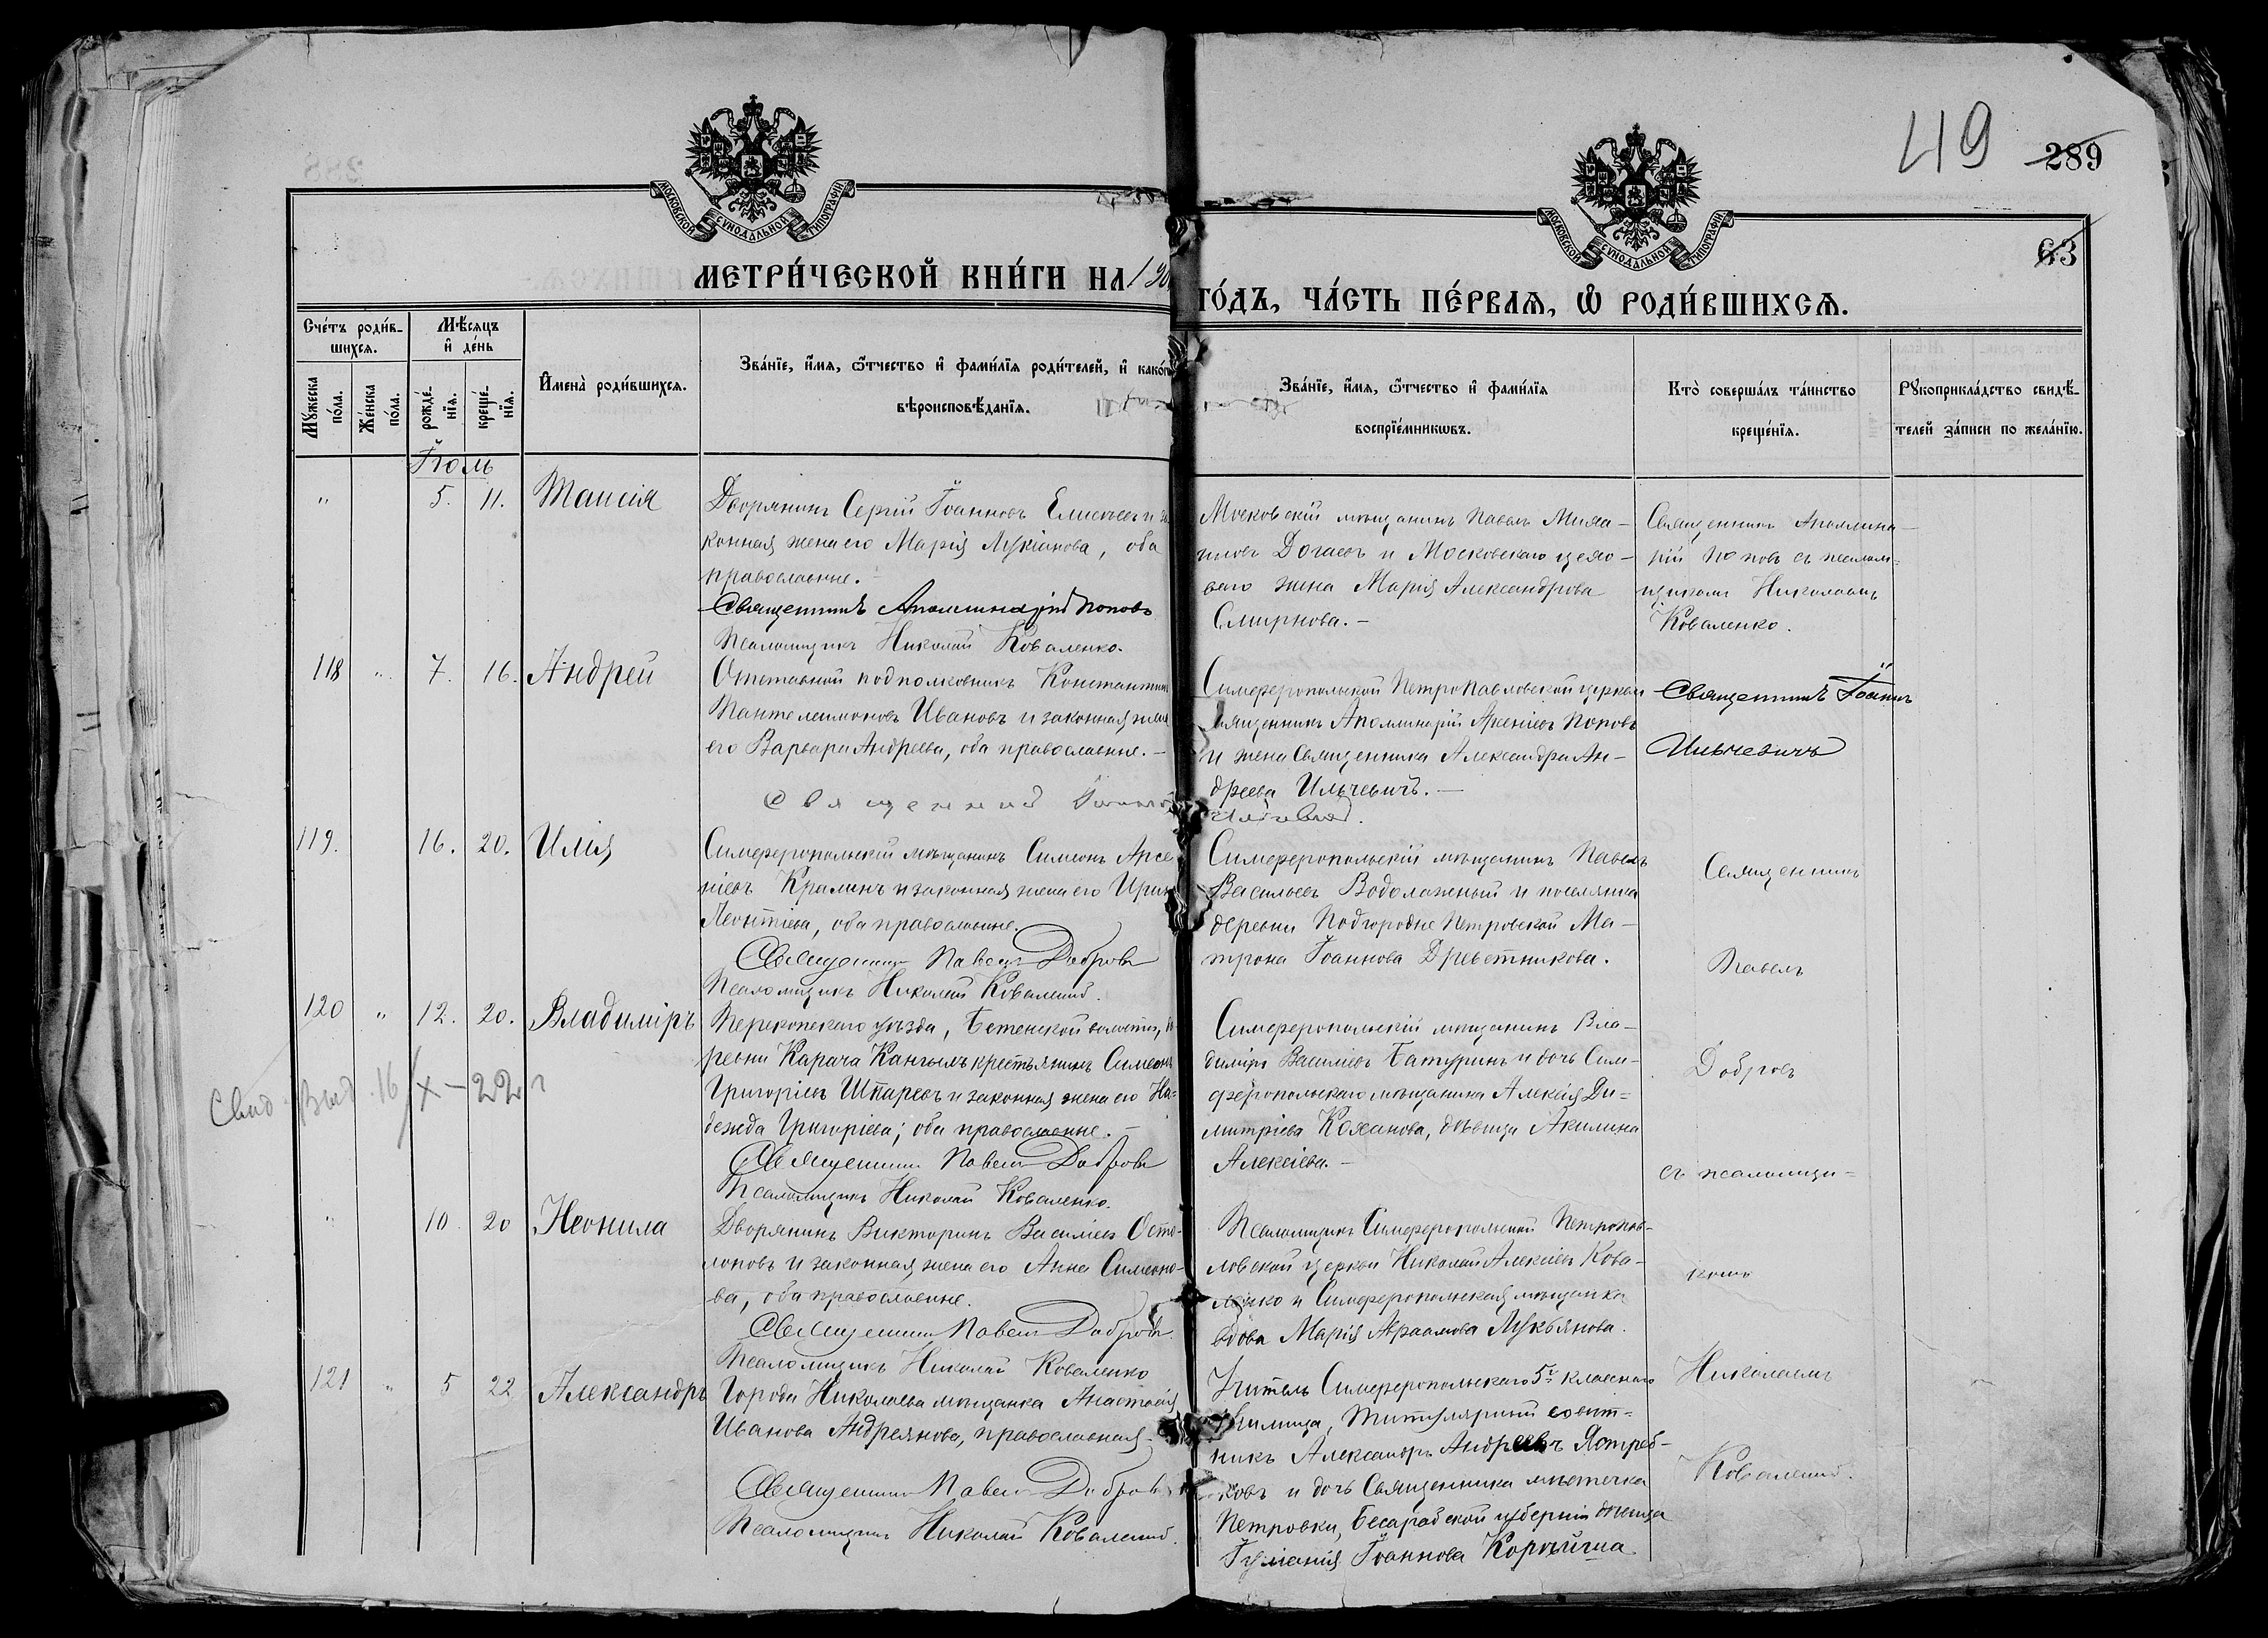 49
289
63
МОСКОВСКОЙ СУНОДАЛЬНОЙ ТИПОГРАФІИ
МОСКОВСКОЙ СУНОДАЛЬНОЙ ТИПОГРАФІИ
МЕТРИ́ЧЕСКОЙ КНИ́ГИ НА 190
ГО́ДЪ, ЧА́СТЬ ПЕ́РВАЯ, Ѡ РОДИ́ВШИХСЯ.
Сче́тъ роди́в-
шихся.
Мѣ́сяцъ
и҆ де́нь
Мꙋ́жеска
по́ла.
Же́нска
по́ла.
рожде́-
нїя.
креще́-
нїя.
И҆мена̀ роди́вшихся.
Зва́нїе, и҆́мя, ѻ҆́тчество и҆ фами́лїя роди́телей, и҆ како́гѡ
вѣроисповѣ́данїя.
Зва́нїе, и҆́мя, ѻ҆́тчество и҆ фами́лїя
воспрїе́мникѡвъ.
Кто̀ соверша́лъ та́инство
креще́нїя.
Рꙋкоприкла́дство свидѣ́-
телей за́писи по жела́нїю.
Іюль
" 5. 11. Таисія
Дворянинъ Сергій Іоанновъ Елисѣевъ и за
конная жена его Марія Лукіанова, оба
православные.
Священникъ Аполлинарій Поповъ
Псаломщикъ Николай Коваленко.
Московскій мѣщанинъ Павелъ Миха-
иловъ Догаевъ и Московскаго цехо-
ваго жена Марія Александрова
Смирнова.-
Священникъ Аполлина-
рій Поповъ съ псалом-
щикомъ Николаемъ
Коваленко.
118 " 7. 16. Андрей
Отставной подполковникъ Константинъ
Пантелеимоновъ Ивановъ и законная жена
его Варвара Андреева, оба православные.-
Священник Іоанн
Симферопольской Петропавловской церкви
священникъ Аполлинарій Арсеніевъ Поповъ
и жена Священника Александра Ан-
дреева Ильчевичъ.-
Священникъ Іоаннъ
Ильчевичъ
119. 16. 20. Илія
Симферопольскій мѣщанинъ Симеонъ Арсе
ніевъ Кралинъ и законная жена его Ирина
Леонтіева, оба православные.
Священникъ Павелъ Добровъ
Псаломщикъ Николай Коваленко.
Симферопольскій мѣщанинъ Павелъ
Васильевъ Водолажный и поселянка
деревни Подгородне Петровской Ма-
трона Іоаннова Древетникова.
Священникъ
Павелъ
120 " 12. 20. Владиміръ
Перекопскаго уѣзда, Бетенской волости, де
ревни Карача Кангылъ крестьянинъ Симеонъ
Григоріевъ Шпаревъ и законная жена его На-
дежда Григоріева; оба православные.-
Священникъ Павелъ Добровъ
Псаломщикъ Николай Коваленко.
Симферопольскій мѣщанинъ Вла-
диміръ Василіевъ Батуринъ и дочь Сим-
феропольскаго мѣщанина Алексія Ди-
митріева Коханова, дѣвица Акилина
Алексіева.-
Добровъ
съ псаломщи-
Свид. выд. 16/X-22 г
" 10. 20 Неонила
Дворянинъ Викторинъ Василіевъ Осто-
лоповъ и законная жена его Анна Симеоно-
ва, оба православные.
Священникъ Павелъ Добровъ
Псаломщикъ Николай Коваленко
Псаломщикъ Симферопольской Петропав-
ловской церкви Николай Алексіевъ Кова-
ленко и Симферопольская мѣщанка
вдова Марія Авраамова Лукьянова.
комъ
121 " 5 22 Александръ
Города Николаева мѣщанка Анастасія
Иванова Андреянова, православная-
Священникъ Павелъ Добровъ
Псаломщикъ Николай Коваленко.
Учитель Симферопольскаго 5го класснаго
училища, титулярный совѣт-
никъ Александръ Андреевъ Ястреб-
ковъ и дочь Священника мѣстечка
Петровки, Бесарабской губерніи дѣвица
Іуліанія Іоаннова
Николаемъ
Коваленко.